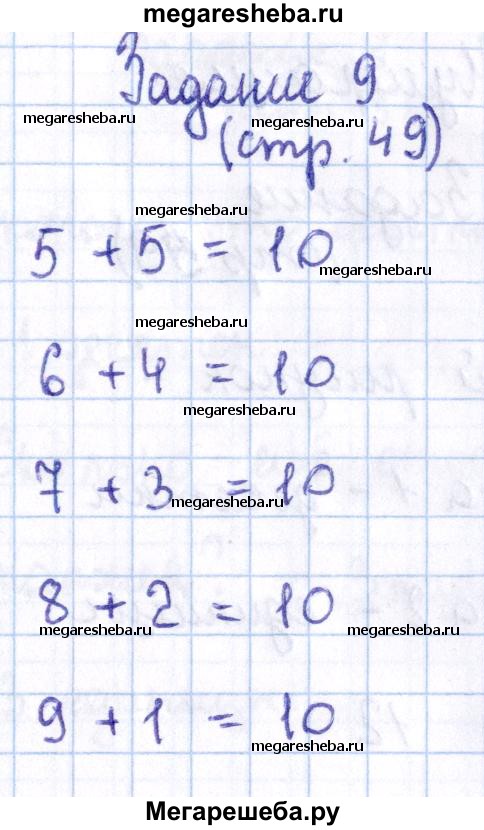 megaresheba.ru
Задание 9
megaresheba.ru
megaresheba.ru
(стр. 49)
megaresheba.ru
5 + 5 = 10
megaresheba.ru
megaresheba.ru
6 + 4 = 10
megaresheba.ru
7 + 3 = 10
megaresheba.ru
8 + 2 = 10
megaresheba.ru
megaresheba.ru
9 + 1 = 10
megaresheba.ru
Мегарешеба.ру